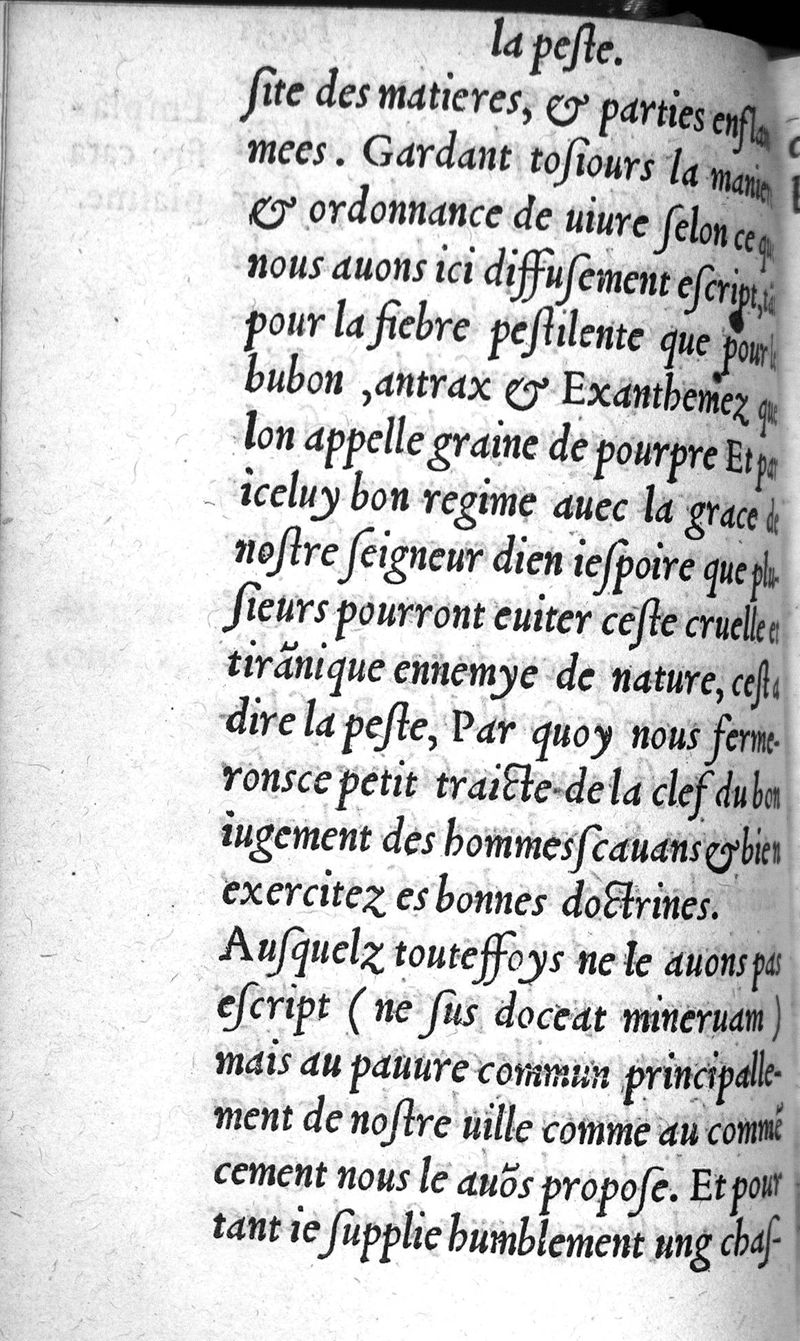 la peſte.
ſite des matieres, & parties enflam
mees. Gardant toſiours la manier
& ordonnance de uiure ſelon ce que
nous auons ici diffuſement eſcript, tāt
pour la fiebre peſtilente que pour le
bubon , antrax & Exanthemez que
lon appelle graine de pourpre Et par
iceluy bon regime auec la grace de
noſtre ſeigneur dien ieſpoire que plu-
ſieurs pourront euiter ceſte cruelle et
tirãnique ennemye de nature, ceſt a
dire la peſte, Par quoy nous ferme-
ronsce petit traicte de la clef du bon
iugement des hommes ſcauans & bien
exercitez es bonnes doctrines.
Auſquelz touteffoys ne le auons pas
eſcript ( ne ſus doceat mineruam )
mais au pauure commun principalle-
ment de noſtre uille comme au commẽ
cement nous le auõs propoſe. Et pour
tant ie ſupplie humblement ung chaſ-